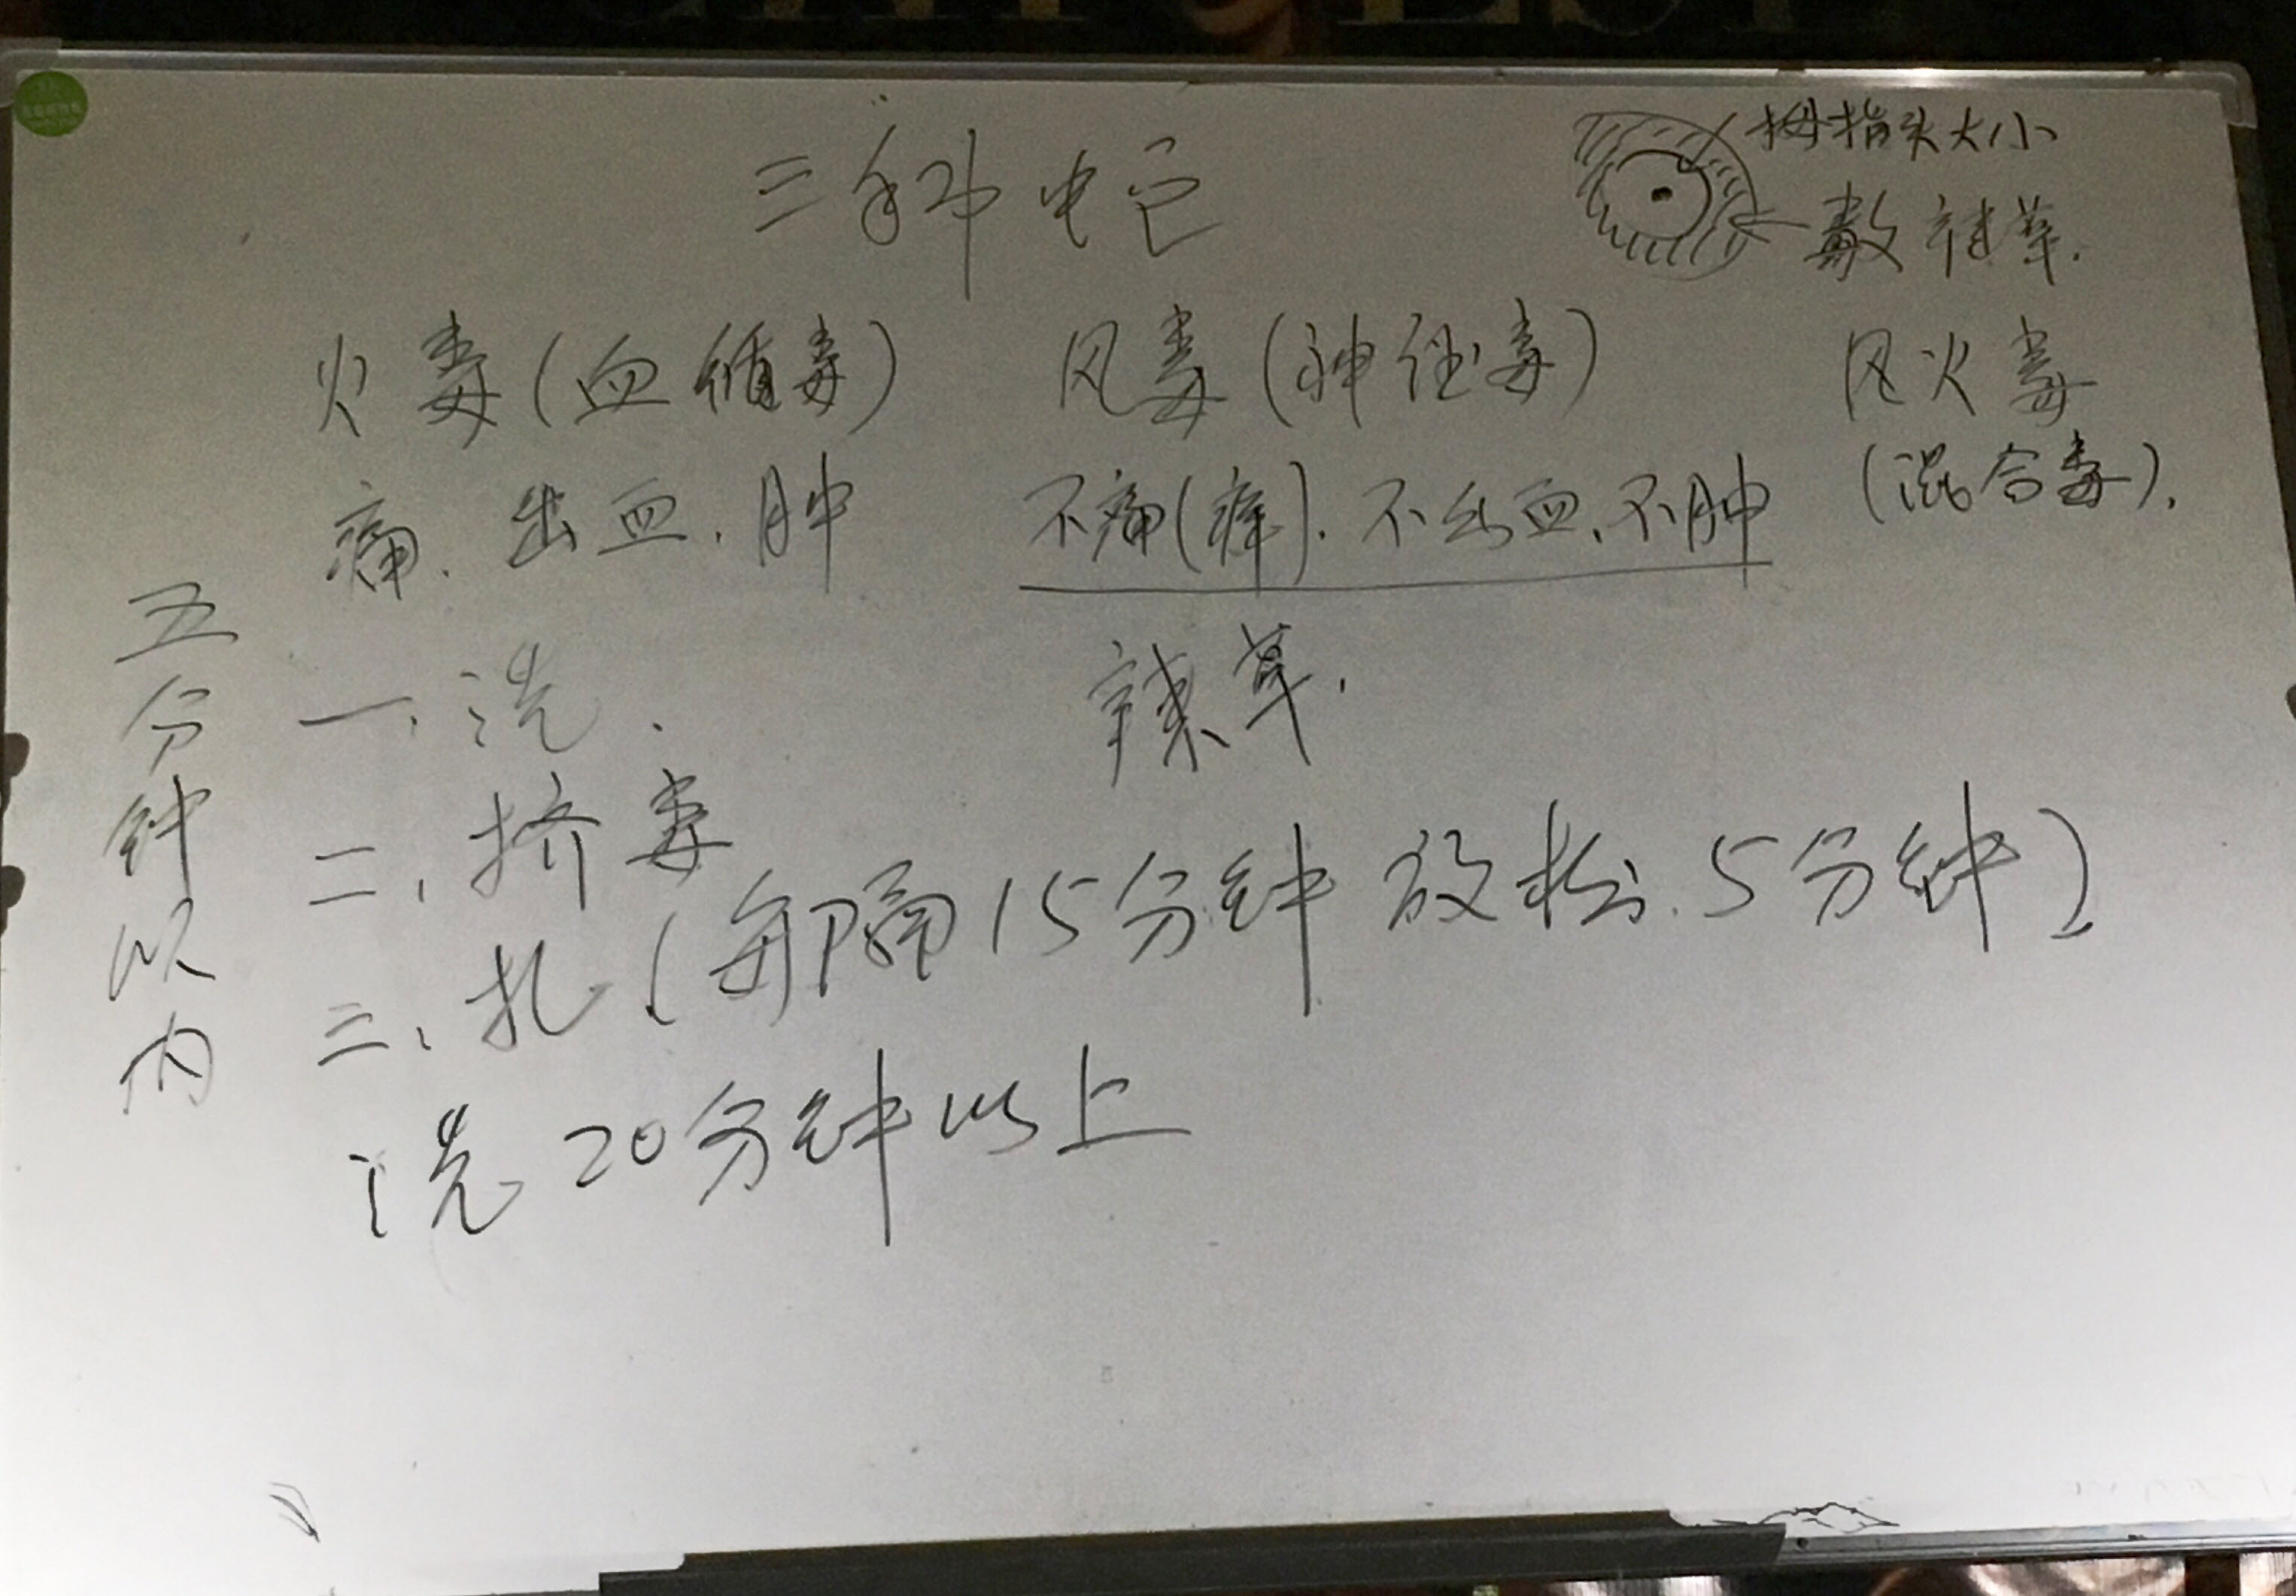 三科蛇
拇指头大小
敷辣草.
火毒(血循毒)
风毒(神经毒)
风火毒
(混合毒).
痛.出血.肿
不痛(痒).不出血、不肿
辣草.
五分钟以内
一、洗.
二、挤毒
三、扎(每隔15分钟放松.5分钟)
洗20分钟以上